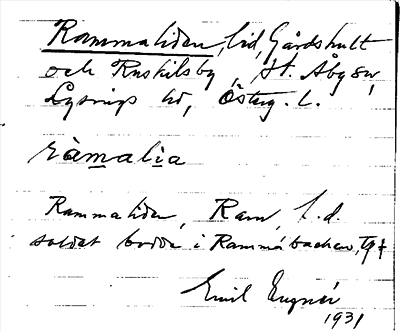 Rammaliden, lid, Gårdshult
och Ruskilsby, St. Åby sn,
Lysings hd, Österg. L.
ràmalìa
Rammaliden, Ram, f.d.
soldat bodde i Rammåbacken,
Emil Engnér
1931